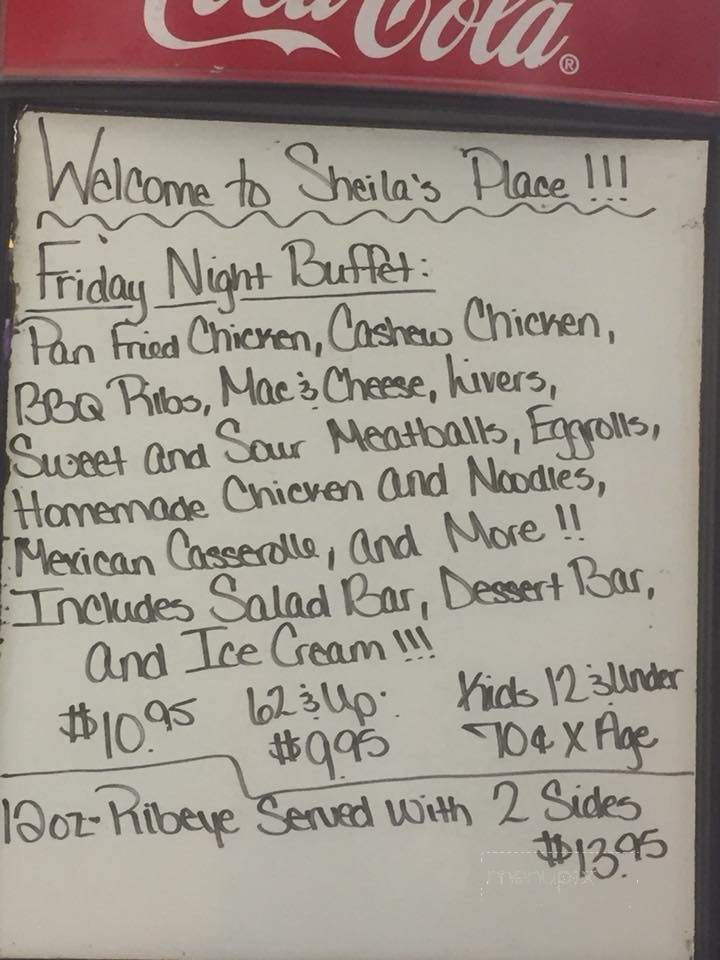 Coca-Cola®
Welcome to Sheila's Place !!!
Friday Night Buffet:
Pan Fried Chicken, Cashew Chicken,
BBQ Ribs, Mac & Cheese, Livers,
Sweet and Sour Meatballs, Eggrolls,
Homemade Chicken and Noodles,
Mexican Casserole, and More !!
Includes Salad Bar, Dessert Bar,
and Ice Cream !!!
$10.95 62 & Up: Kids 12 & Under
$9.95 70¢ X Age
12oz- Ribeye Served With 2 Sides
$13.95